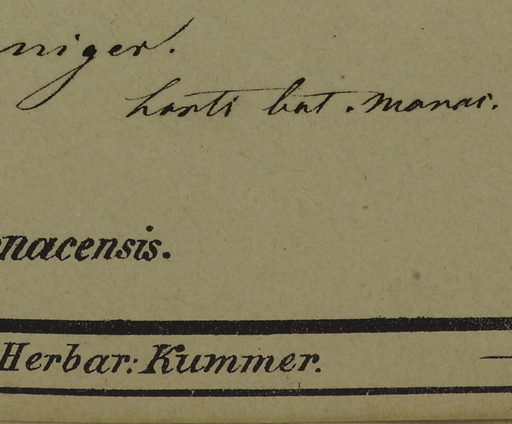 niger.
horti bot. monac.
nacensis.
Herbar: Kummer.